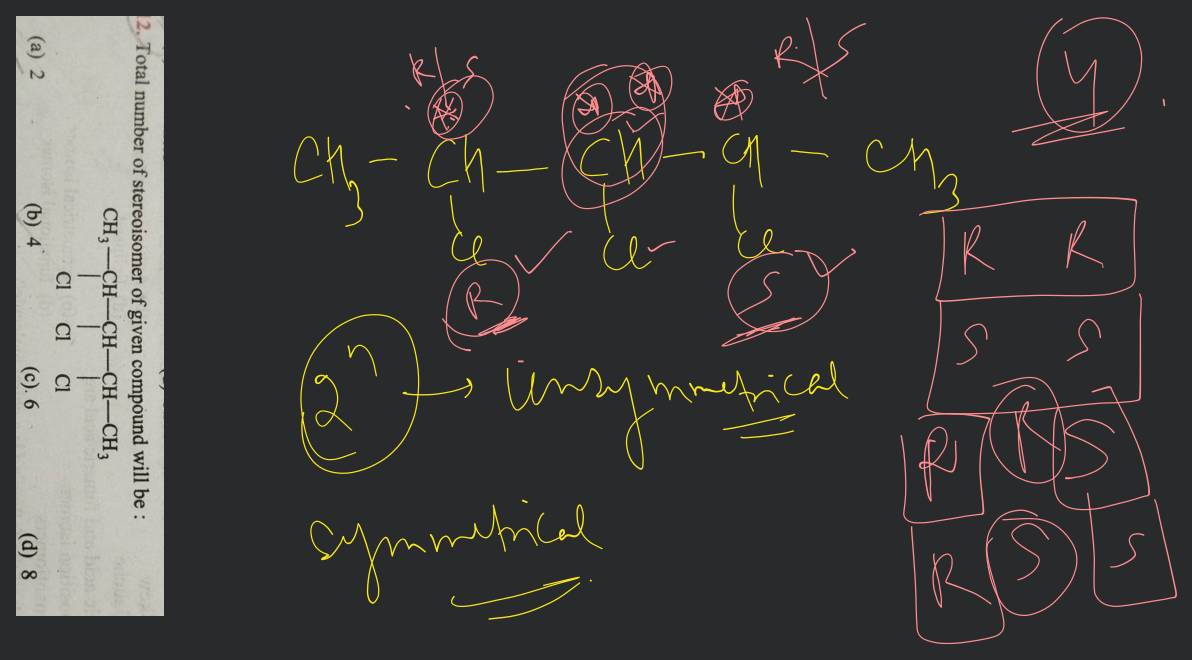 12. Total number of stereoisomer of given compound will be :
CH3—CH—CH—CH—CH3
Cl Cl Cl
(a) 2 (b) 4 (c). 6 (d) 8
R S
R S
4
CH3 — CH — CH — CH — CH3
Cl Cl Cl
R S
2^n → Unsymmetrical
symmetrical
R R
S S
R R S
R S S